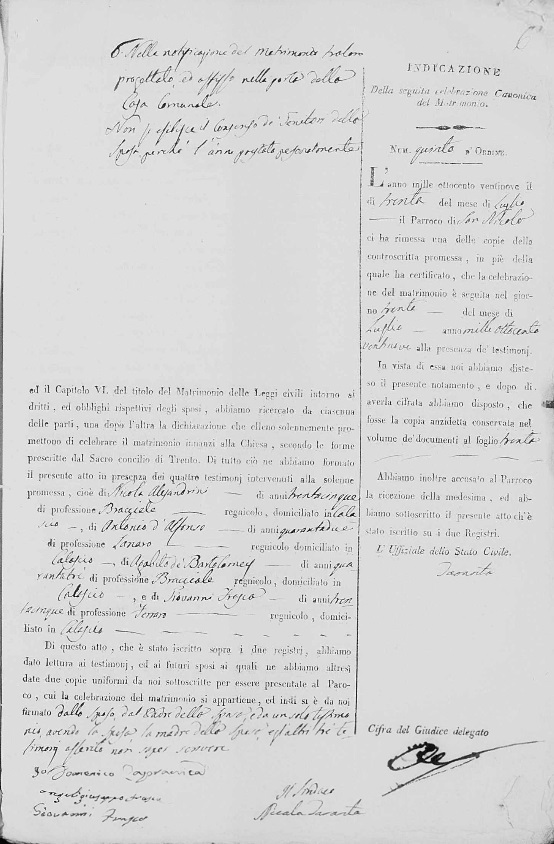 6. Nella notificazione del matrimonio
progettato, ed affisso nella porta della
Casa Comunale.
Non si esibisce il Consenso de' Genitori dello
Sposo perché l'anno prestato personalmente
ed il Capitolo VI. del titolo del Matrimonio delle Leggi civili intorno ai
dritti, ed obblighi rispettivi degli sposi, abbiamo ricercato da ciascuna
delle parti, una dopo l'altra la dichiarazione che elleno solennemente pro-
mettono di celebrare il matrimonio innanzi alla Chiesa, secondo le forme
prescritte dal Sacro concilio di Trento. Di tutto ciò ne abbiamo formato
il presente atto in presenza dei quattro testimonj intervenuti alla solenne
promessa, cioè di Nicola Alesandrini — di anni trentacinque
di professione Bracciale — regnicolo, domiciliato in Cala
scio —, di Antonio d'Alfonso — di anni quarantadue
di professione Lanaro — regnicolo domiciliato in
Calascio —, di Ippolito de Bartolomeis — di anni qua
rantatri di professione Bracciale regnicolo, domiciliato in
Calascio —, e di Giovanni Frasca — di anni tren
tacinque di professione Ferraro — regnicolo, domici-
liato in Calascio — — —
Di questo atto, che è stato iscritto sopra i due registri, abbiamo
dato lettura ai testimonj, ed ai futuri sposi ai quali ne abbiamo altresì
date due copie uniformi da noi sottoscritte per essere presentate al Paro-
co, cui la celebrazione del matrimonio si appartiene, ed indi si è da noi
firmato dallo sposo, dal Padre dello sposo, e da un solo testimo
nio, avendo la sposa, la madre dello sposo, e gl'altri tre te
stimonj asserito non saper scrivere
Io Domenico
angelo giuseppe frasca
Giovanni Frasca
Il Sindaco
Nicola Taranta
INDICAZIONE
Della seguita celebrazione Canonica
del Matrimonio.
Num. quinto d'Ordine.
L'anno mille ottocento ventinove il
di trenta del mese di Luglio
— il Parroco di San Nicola
ci ha rimessa una delle copie della
controscritta promessa, in piè della
quale ha certificato, che la celebrazio-
ne del matrimonio è seguita nel gior-
no trenta — del mese di
Luglio — anno mille ottocento
ventinove alla presenza de' testimonj.
In vista di essa noi abbiamo diste-
so il presente notamento, e dopo di
averla cifrata abbiamo disposto, che
fosse la copia anzidetta conservata nel
volume de' documenti al foglio trenta
Abbiamo inoltre accusato al Parroco
la ricezione della medesima, ed ab-
biamo sottoscritto il presente atto ch'è
stato iscritto su i due Registri.
L' Uffiziale dello Stato Civile.
Taranta
Cifra del Giudice delegato